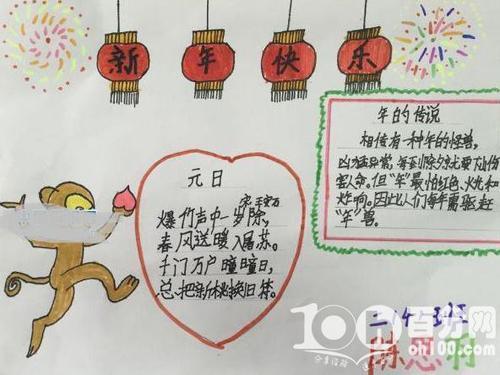 新年快乐
年的传说
相传有一种年的怪兽,
凶猛异常,每到除夕就要
害人命。但“年”最怕红色、火光和
炸响。因此人们每年需驱赶
“年”兽。
元日
宋 王安石
爆竹声中一岁除,
春风送暖入屠苏。
千门万户曈曈日,
总把新桃换旧符。
百方网
oh100.com